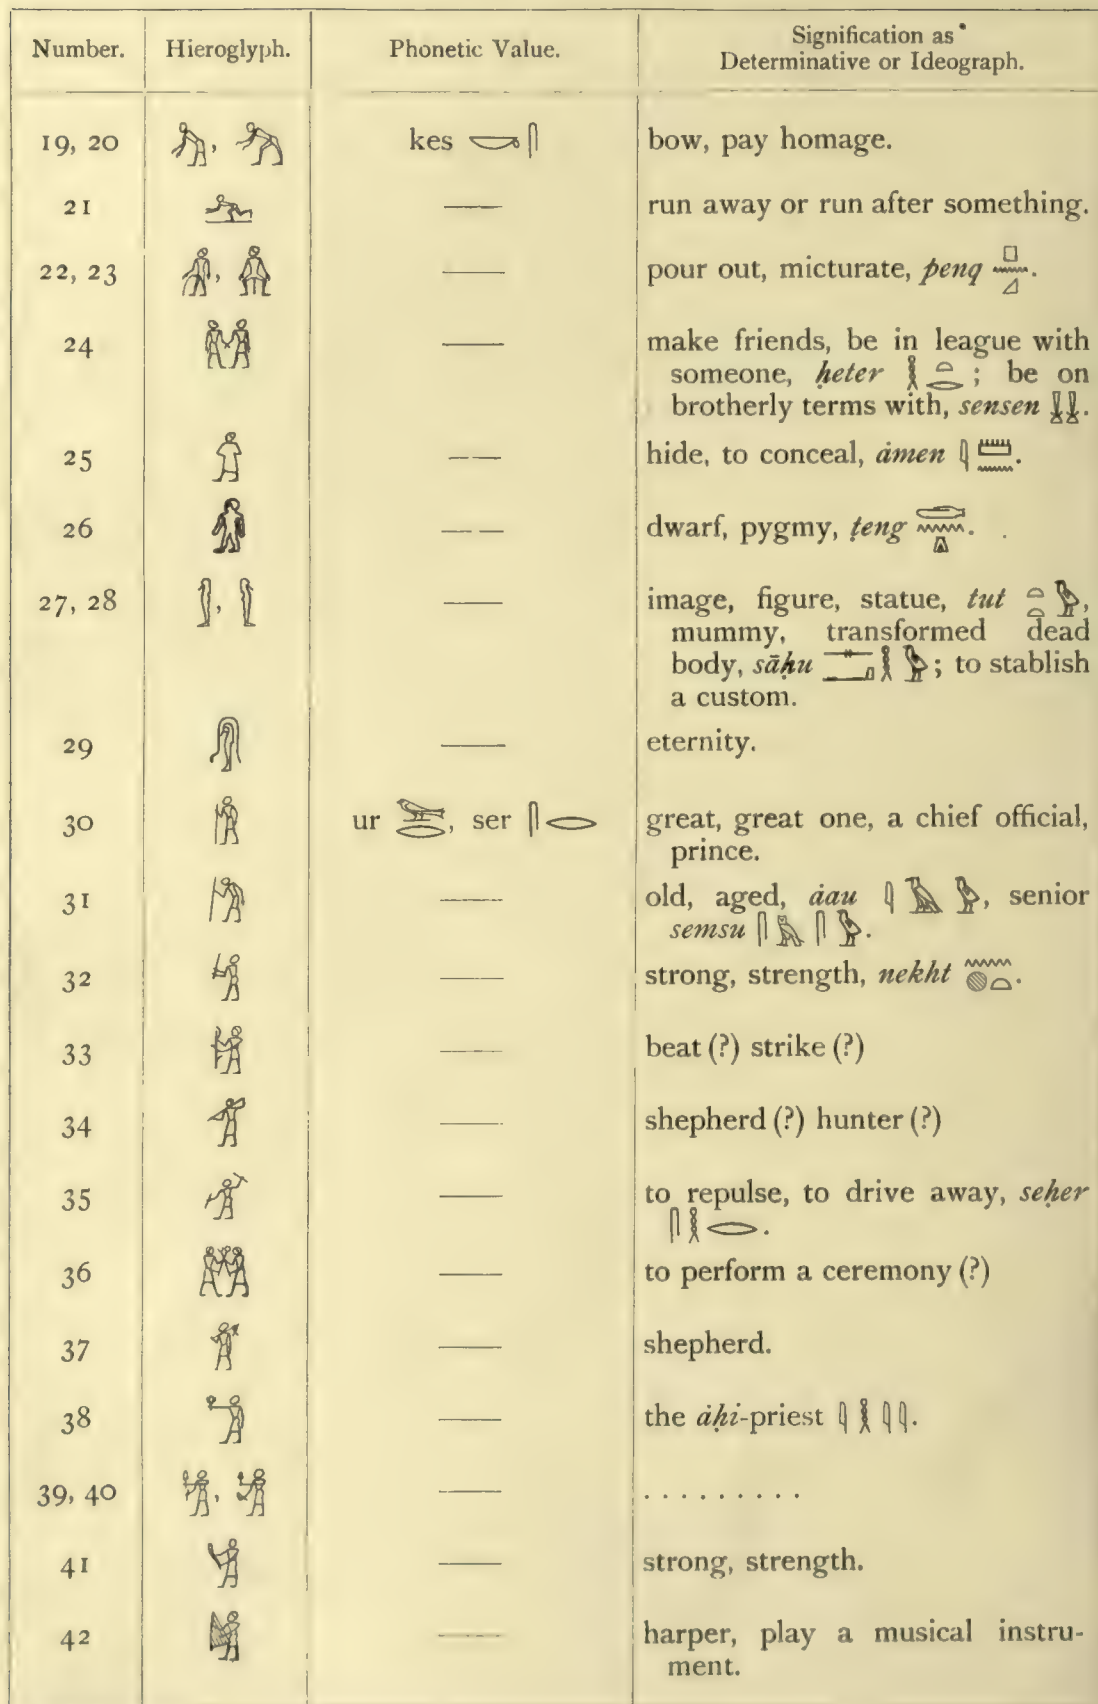 Number. Hieroglyph. Phonetic Value. Signification as
Determinative or Ideograph.
19, 20 𓀢, 𓀣 kes 𓎡𓋴 bow, pay homage.
21 — run away or run after something.
22, 23 — pour out, micturate, penq 𓊪𓈖𓈎.
24 — make friends, be in league with
someone, ḥeter 𓎛𓏏𓂋; be on
brotherly terms with, sensen 𓌢𓌢.
25 — hide, to conceal, ȧmen 𓇋𓏠𓈖.
26 — dwarf, pygmy, ṭeng 𓂧𓈖𓎼.
27, 28 — image, figure, statue, tut 𓏏𓏏𓅱,
mummy, transformed dead
body, sāḥu 𓊃𓂝𓎛𓅱; to stablish
a custom.
29 — eternity.
30 ur 𓅨𓂋, ser 𓋴𓂋 great, great one, a chief official,
prince.
31 — old, aged, ȧau 𓇋𓄿𓅱, senior
semsu 𓋴𓅓𓋴𓅱.
32 — strong, strength, nekht 𓈖𓐍𓏏.
33 — beat (?) strike (?)
34 — shepherd (?) hunter (?)
35 — to repulse, to drive away, seḥer
𓋴𓎛𓂋.
36 — to perform a ceremony (?)
37 — shepherd.
38 — the ȧḥi-priest 𓇋𓎛𓇋𓇋.
39, 40 — . . . . . . . . .
41 — strong, strength.
42 — harper, play a musical instru-
ment.